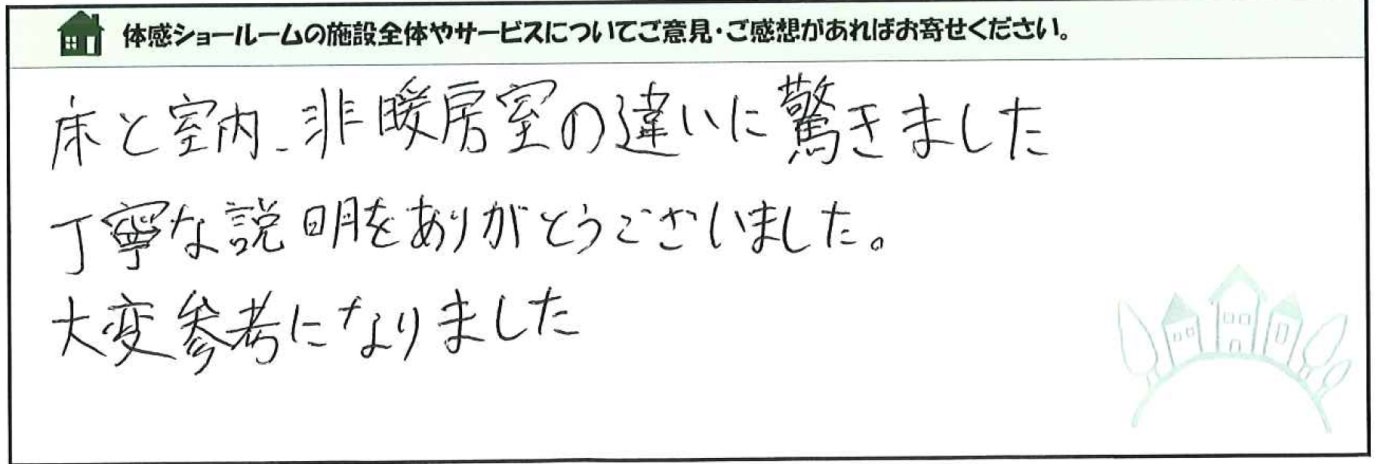 体感ショールームの施設全体やサービスについてご意見・ご感想があればお寄せください。
床と室内、非暖房室の違いに驚きました
丁寧な説明をありがとうございました。
大変参考になりました